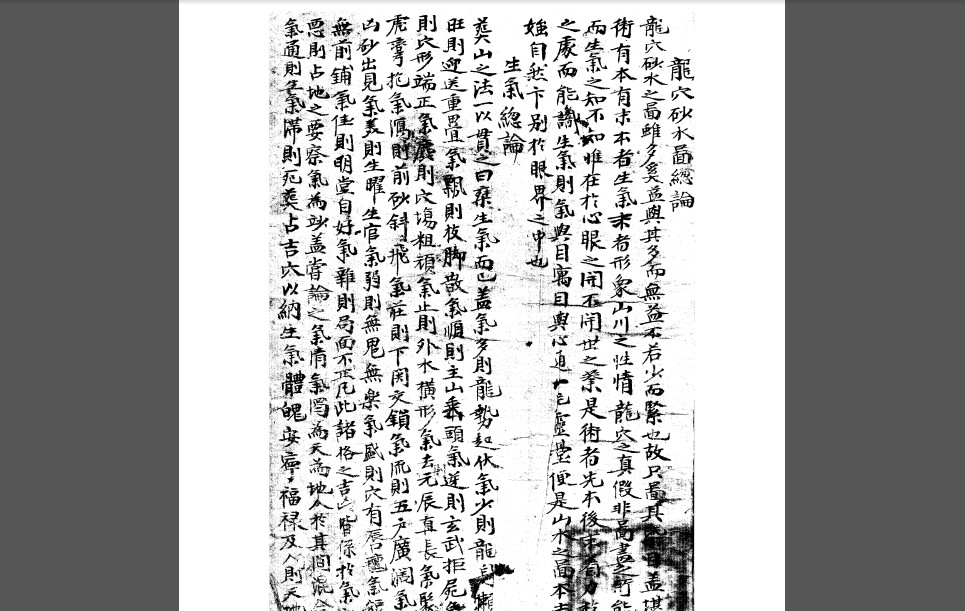 龍穴砂水啚總論
龍穴砂水之啚雖多奚益與其多而無益不若少而緊也故只啚其盖堪
術有本有末本者生氣末者形象山川之性情龍穴之真假非啚盡之所能
而生氣之知不知惟在於心眼之開不開世之業是術者先本後末
之處而能識生氣則氣與目寓目與心通靈臺便是山水之啚本
媸自然卞别於眼界之中也
生氣總論
葬山之法一以貫之曰乘生氣而已盖氣多則龍勢起伏氣少則龍身懶
旺則迎送重疊氣飄則枝脚散氣順則主山垂頭氣逆則玄武拒屍氣
則穴形端正氣虛則穴塲粗頑氣止則外水橫形氣去元辰直長氣聚
虎拿抱氣瀉則前砂斜飛氣莊則下関交鎖氣流則五户廣濶氣
凶砂出見氣美則生曜生官氣弱則無鬼無樂氣盛則穴有唇氣
無前鋪氣佳則明堂自好氣雜則局面不正凡此諸格之吉凶皆係於氣
惡則占地之要察氣為妙盖嘗論之氣清氣濁為天為地人於其間混
氣通則生氣滯則死葬占吉穴以納生氣體魄安寧福禄及人則天地